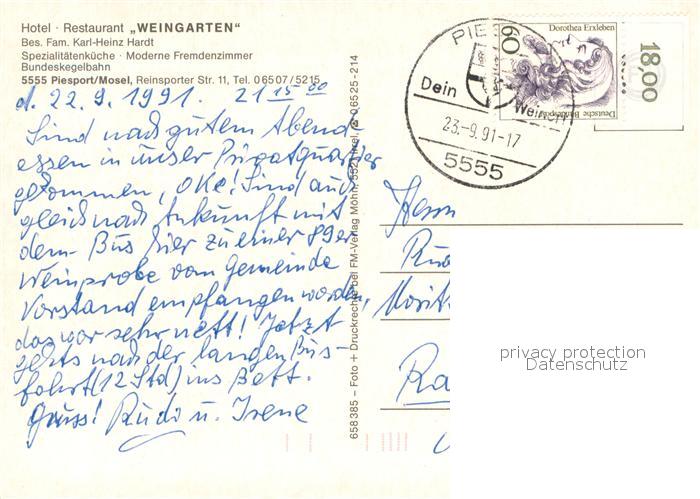 Hotel · Restaurant „WEINGARTEN"
Bes. Fam. Karl-Heinz Hardt
Spezialitätenküche · Moderne Fremdenzimmer
Bundeskegelbahn
5555 Piesport/Mosel, Reinsporter Str. 11, Tel. 06507/5215
d. 22.9.1991. 21 15 00
Sind nach gutem Abend-
essen in unser Privatquartier
gekommen, Oke! Sind auch
gleich nach Ankunft mit
dem Bus hier zu einer 89er
Weinprobe vom Gemeinde
Vorstand empfangen worden,
das war sehr nett! Jetzt
gehts nach der langen Bus-
fahrt (12 Std) ins Bett.
Gruss! Rudi u. Irene
658385 – Foto + Druckrechte bei FM-Verlag Möhn, 5521 Irrel, ☎ 06525-214
PIES
Dein
Weinort
23.-9.91-17
5555
60
Dorothea Erxleben
Deutsche Bundespost
18,00
Herrn
Ru
Morit
Ra
privacy protection
Datenschutz